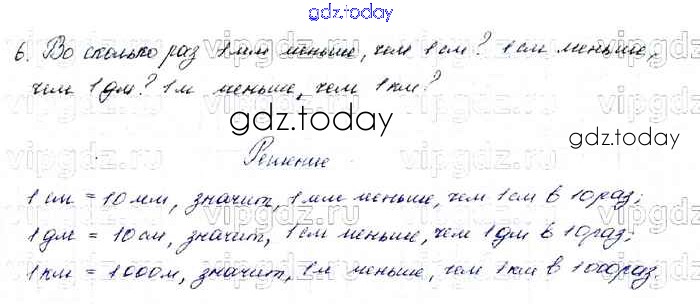 gdz.today
6. Во сколько раз 1 мм меньше, чем 1 см? 1 см меньше,
чем 1 дм? 1 м меньше, чем 1 км?
gdz.today
gdz.today
Решение
1 см = 10 мм, значит, 1 мм меньше, чем 1 см в 10 раз;
1 дм = 10 см, значит, 1 см меньше, чем 1 дм в 10 раз;
1 км = 1000 м, значит, 1 м меньше, чем 1 км в 1000 раз.